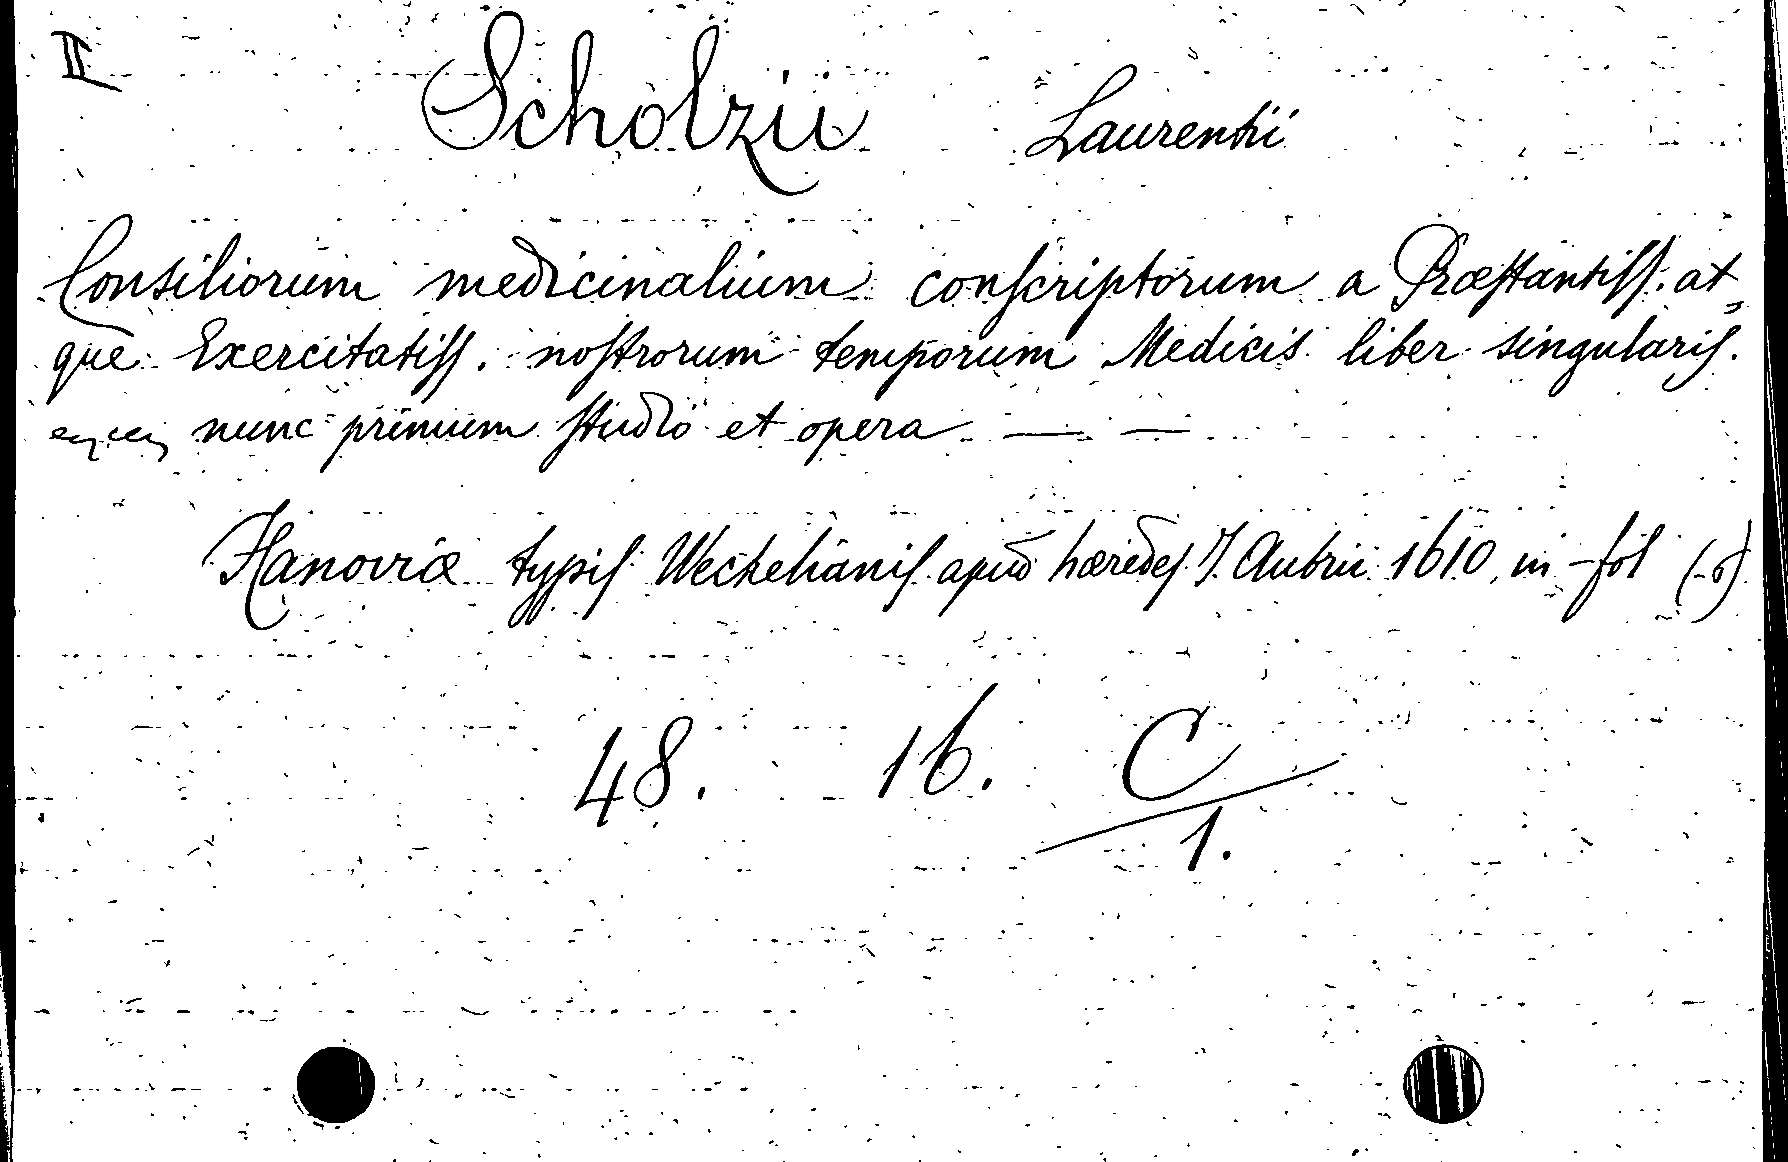 II Scholzii Laurentii
Consiliorum medicinalium conscriptorum a Præstantiss. at„
que Exercitatiss. nostrorum temporum Medicis liber singularis.
nunc primum studio et opera — —
Hanoviæ typis Wechelianis apud hæredes J. Aubrii 1610, in-fol
48. 16. C
1.